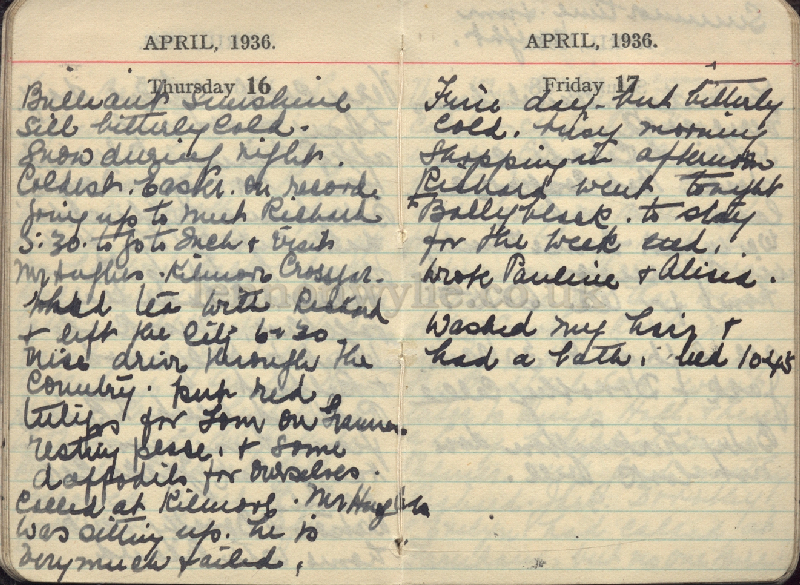 APRIL, 1936.
Thursday 16
Brilliant Sunshine
Still bitterly cold.
Snow during night.
Coldest. Easter. on record.
going up to meet Richard
5:30. to go to Inch & Visit
Mr Hughes. Kilmore Crossgar.
had tea with Richard
& left the City 6-30
Nice drive through the
Country. put red
tulips for Tom on
resting place, & some
daffodils for ourselves.
Called at Kilmore. Mr Hughes
was sitting up. he is
very much failed,
APRIL, 1936.
Friday 17
Fine day. but bitterly
Cold. busy morning
Shopping in afternoon
Richard went tonight
Ballyblack. to stay
for the week end.
wrote Pauline & Alisia.
Washed my hair &
had a bath. bed 10-45